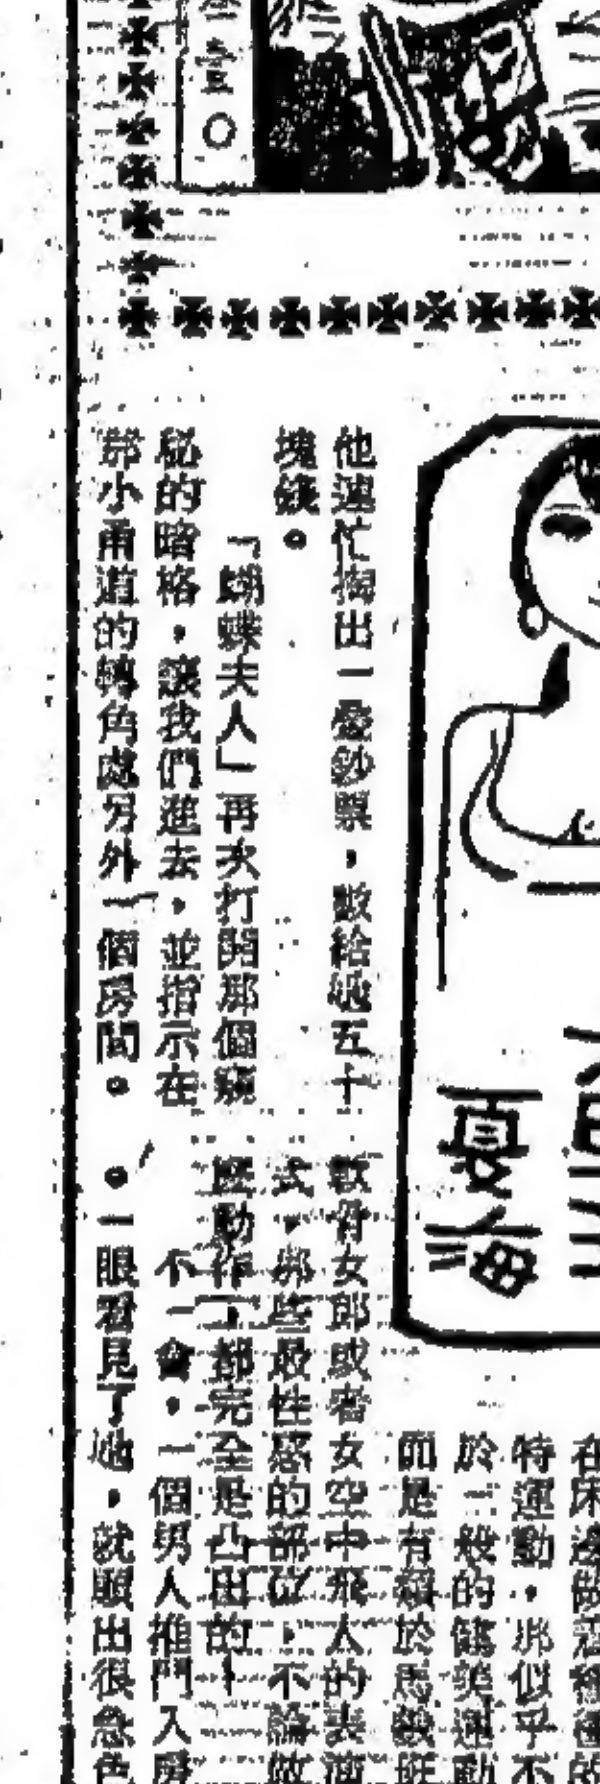 他連忙掏出一疊鈔票，數給她五十
塊錢。
「蝴蝶夫人」再次打開那個窺
秘的暗格，讓我們進去，並指示在
那小甬道的轉角處另外一個房間。
特運動，那似乎不
於一般的健美運動
而是有類於馬戲班
軟骨女郎或者女空中飛人的表演
式，那些最性感的部位，不論做
動作，都完全是凸出的！
不一會，一個男人推門入房
。一眼看見了她，就顯出很急色
夏
海